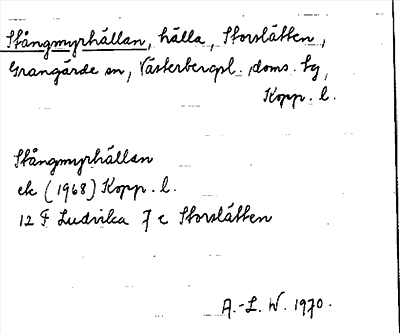 Stångmyrhällan, hälla, Storslätten,
Grangärde sn, Västerbergsl. doms. tg,
Kopp. l.
Stångmyrhällan
ek (1968) Kopp. l.
12 F Ludvika 7 c Storslätten
A.-L. W. 1970.